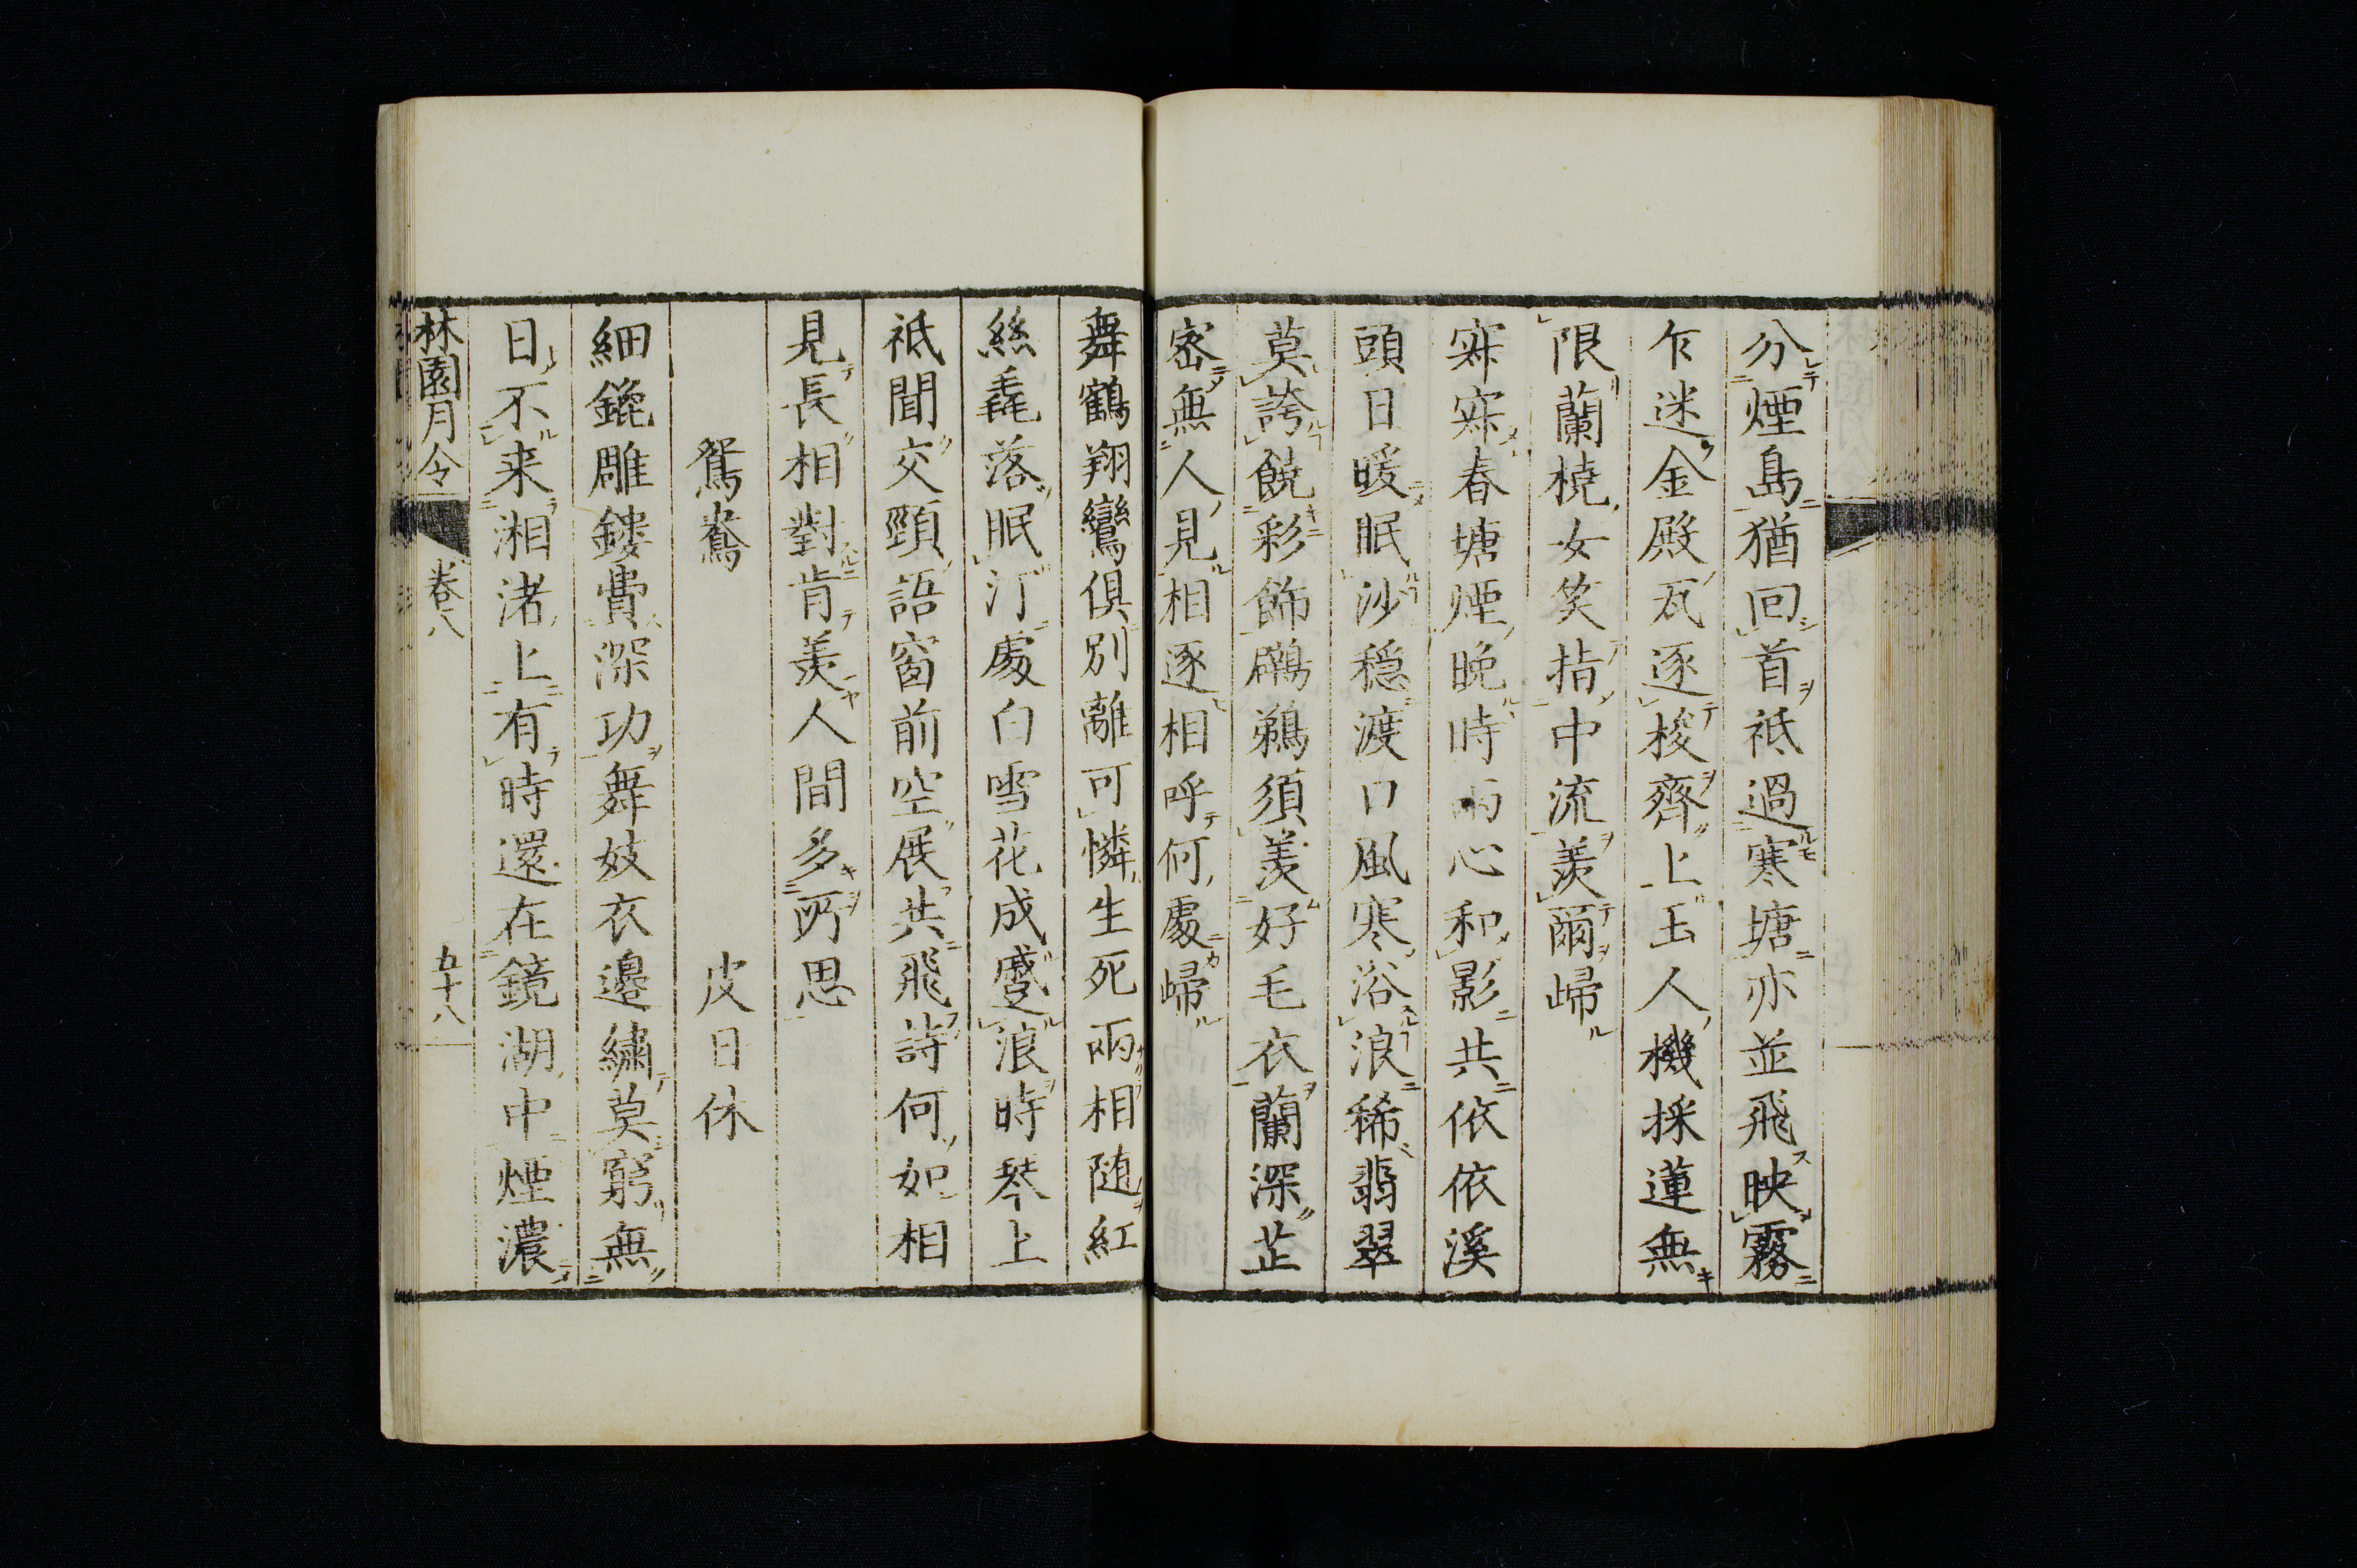 分煙島猶回首祗過寒塘亦並飛映霧
乍迷金殿瓦逐梭齊上玉人機採蓮無
限蘭橈女笑指中流羨爾歸
寂寂春塘煙晚時兩心和影共依依溪
頭日暖眠沙穩渡口風寒浴浪稀翡翠
莫誇饒彩飾鸊鵜須羨好毛衣蘭深芷
密無人見相逐相呼何處歸
舞鶴翔鸞俱別離可憐生死兩相随紅
絲毳落眠汀處白雪花成蹙浪時琴上
祗聞交頸語窗前空展共飛詩何如相
見長相對肯羨人間多所思
鴛鴦 皮日休
細鎞雕鏤費深功舞妓衣邊繡莫窮無
日不来湘渚上有時還在鏡湖中煙濃
林園月令 卷八 五十八